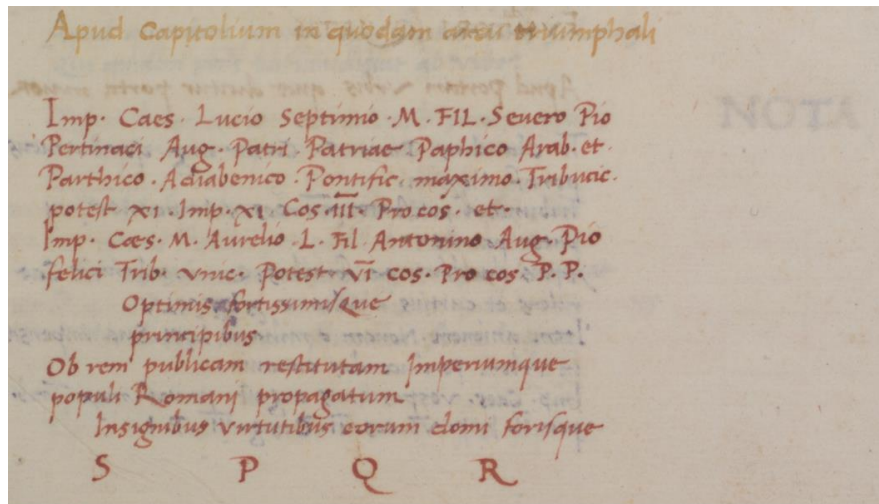 Apud Capitolium in quodam arcu triumphali
NOTA
Imp. Caes. Lucio Septimio. M. FIL. Severo Pio
Pertinaci Aug. Patri Patriae Paphico Arab. et.
Parthico. Adiabenico. Pontific. maximo. Tribucic.
potest XI. Imp. XI Cos. III. Procos. et.
Imp. Caes. M. Aurelio. L. Fil Antonino Aug. Pio
felici Trib. vnic. Potest. VI cos. Procos. P. P.
Optimis fortissimisque
principibus
Ob rem publicam restitutam Imperiumque
populi Romani propagatum
Insignibus virtutibus eorum domi forisque
S P Q R